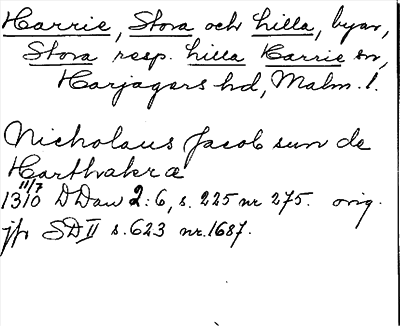 Harrie, Stora och Lilla, byar,
Stora resp. Lilla Harrie sn,
Harjagers hd, Malm. l.
Nicholaus Jacob sun de
Harthakræ
11/7
1310 DDan 2:6, s. 225 nr 275. orig.
jfr SD II s. 623 nr. 1687.